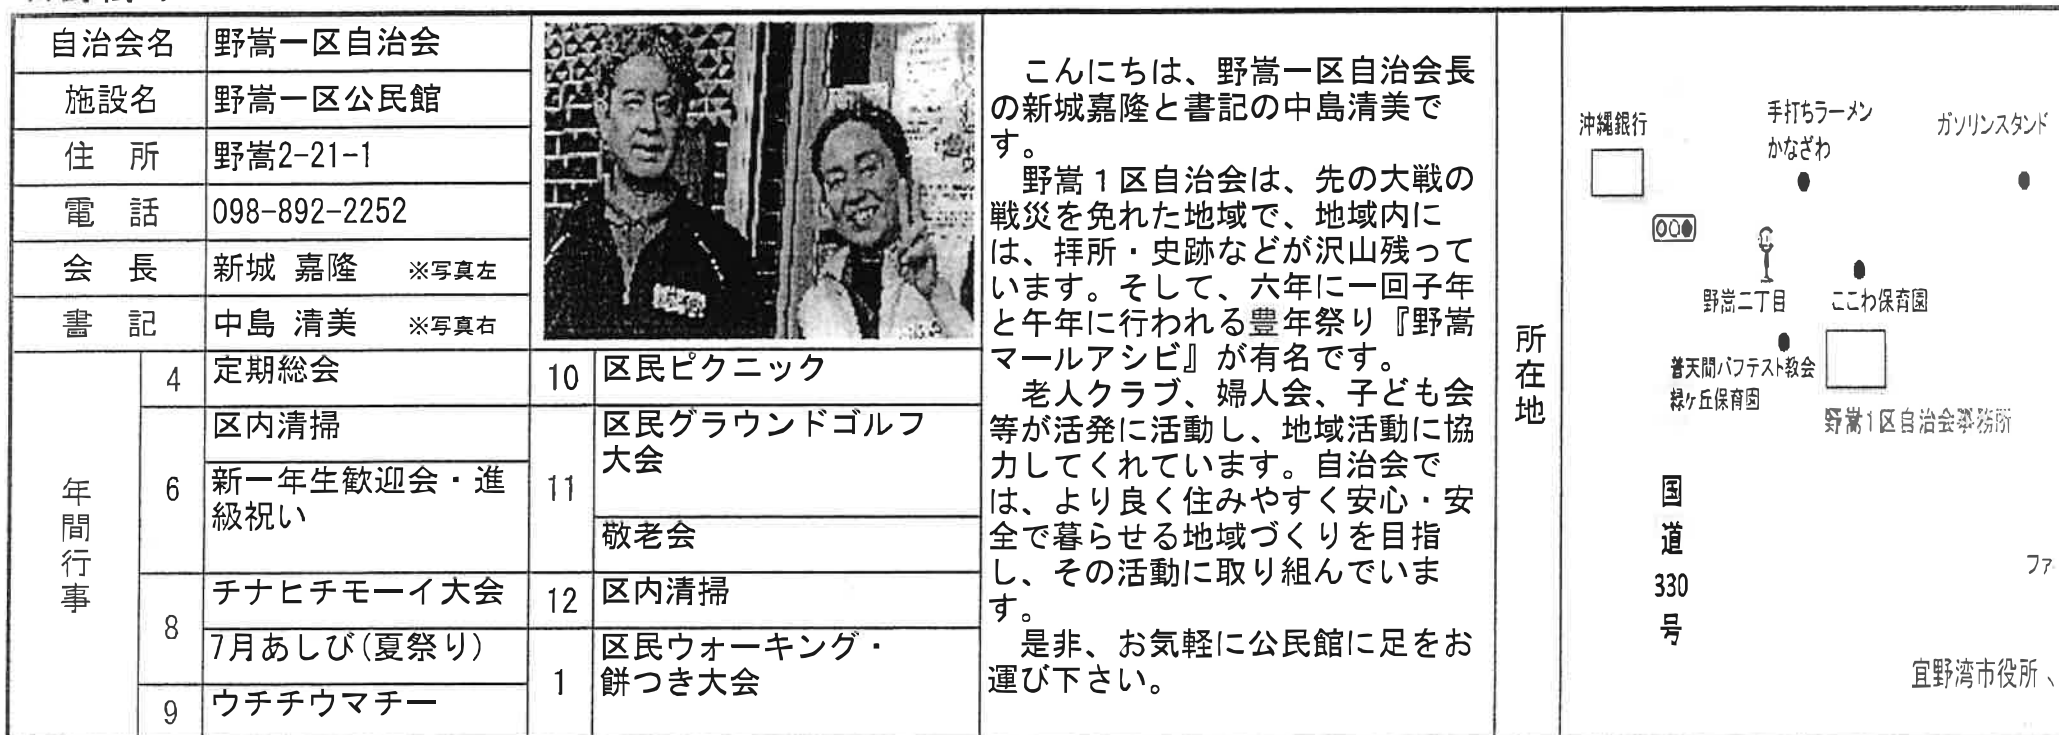 自治会名 野嵩一区自治会
施設名 野嵩一区公民館
住 所 野嵩2-21-1
電 話 098-892-2252
会 長 新城 嘉隆 ※写真左
書 記 中島 清美 ※写真右
年間行事
4 定期総会
6 区内清掃
新一年生歓迎会・進
級祝い
8 チナヒチモーイ大会
7月あしび(夏祭り)
9 ウチチウマチー
10 区民ピクニック
11 区民グラウンドゴルフ
大会
敬老会
12 区内清掃
1 区民ウォーキング・
餅つき大会
こんにちは、野嵩一区自治会長
の新城嘉隆と書記の中島清美で
す。
野嵩1区自治会は、先の大戦の
戦災を免れた地域で、地域内に
は、拝所・史跡などが沢山残って
います。そして、六年に一回子年
と午年に行われる豊年祭り『野嵩
マールアシビ』が有名です。
老人クラブ、婦人会、子ども会
等が活発に活動し、地域活動に協
力してくれています。自治会で
は、より良く住みやすく安心・安
全で暮らせる地域づくりを目指
し、その活動に取り組んでいま
す。
是非、お気軽に公民館に足をお
運び下さい。
所在地
沖縄銀行
手打ちラーメン
かなざわ
ガソリンスタンド
野嵩二丁目
ここわ保育園
普天間バプテスト教会
緑ヶ丘保育園
野嵩1区自治会事務所
国道330号
ファ
宜野湾市役所